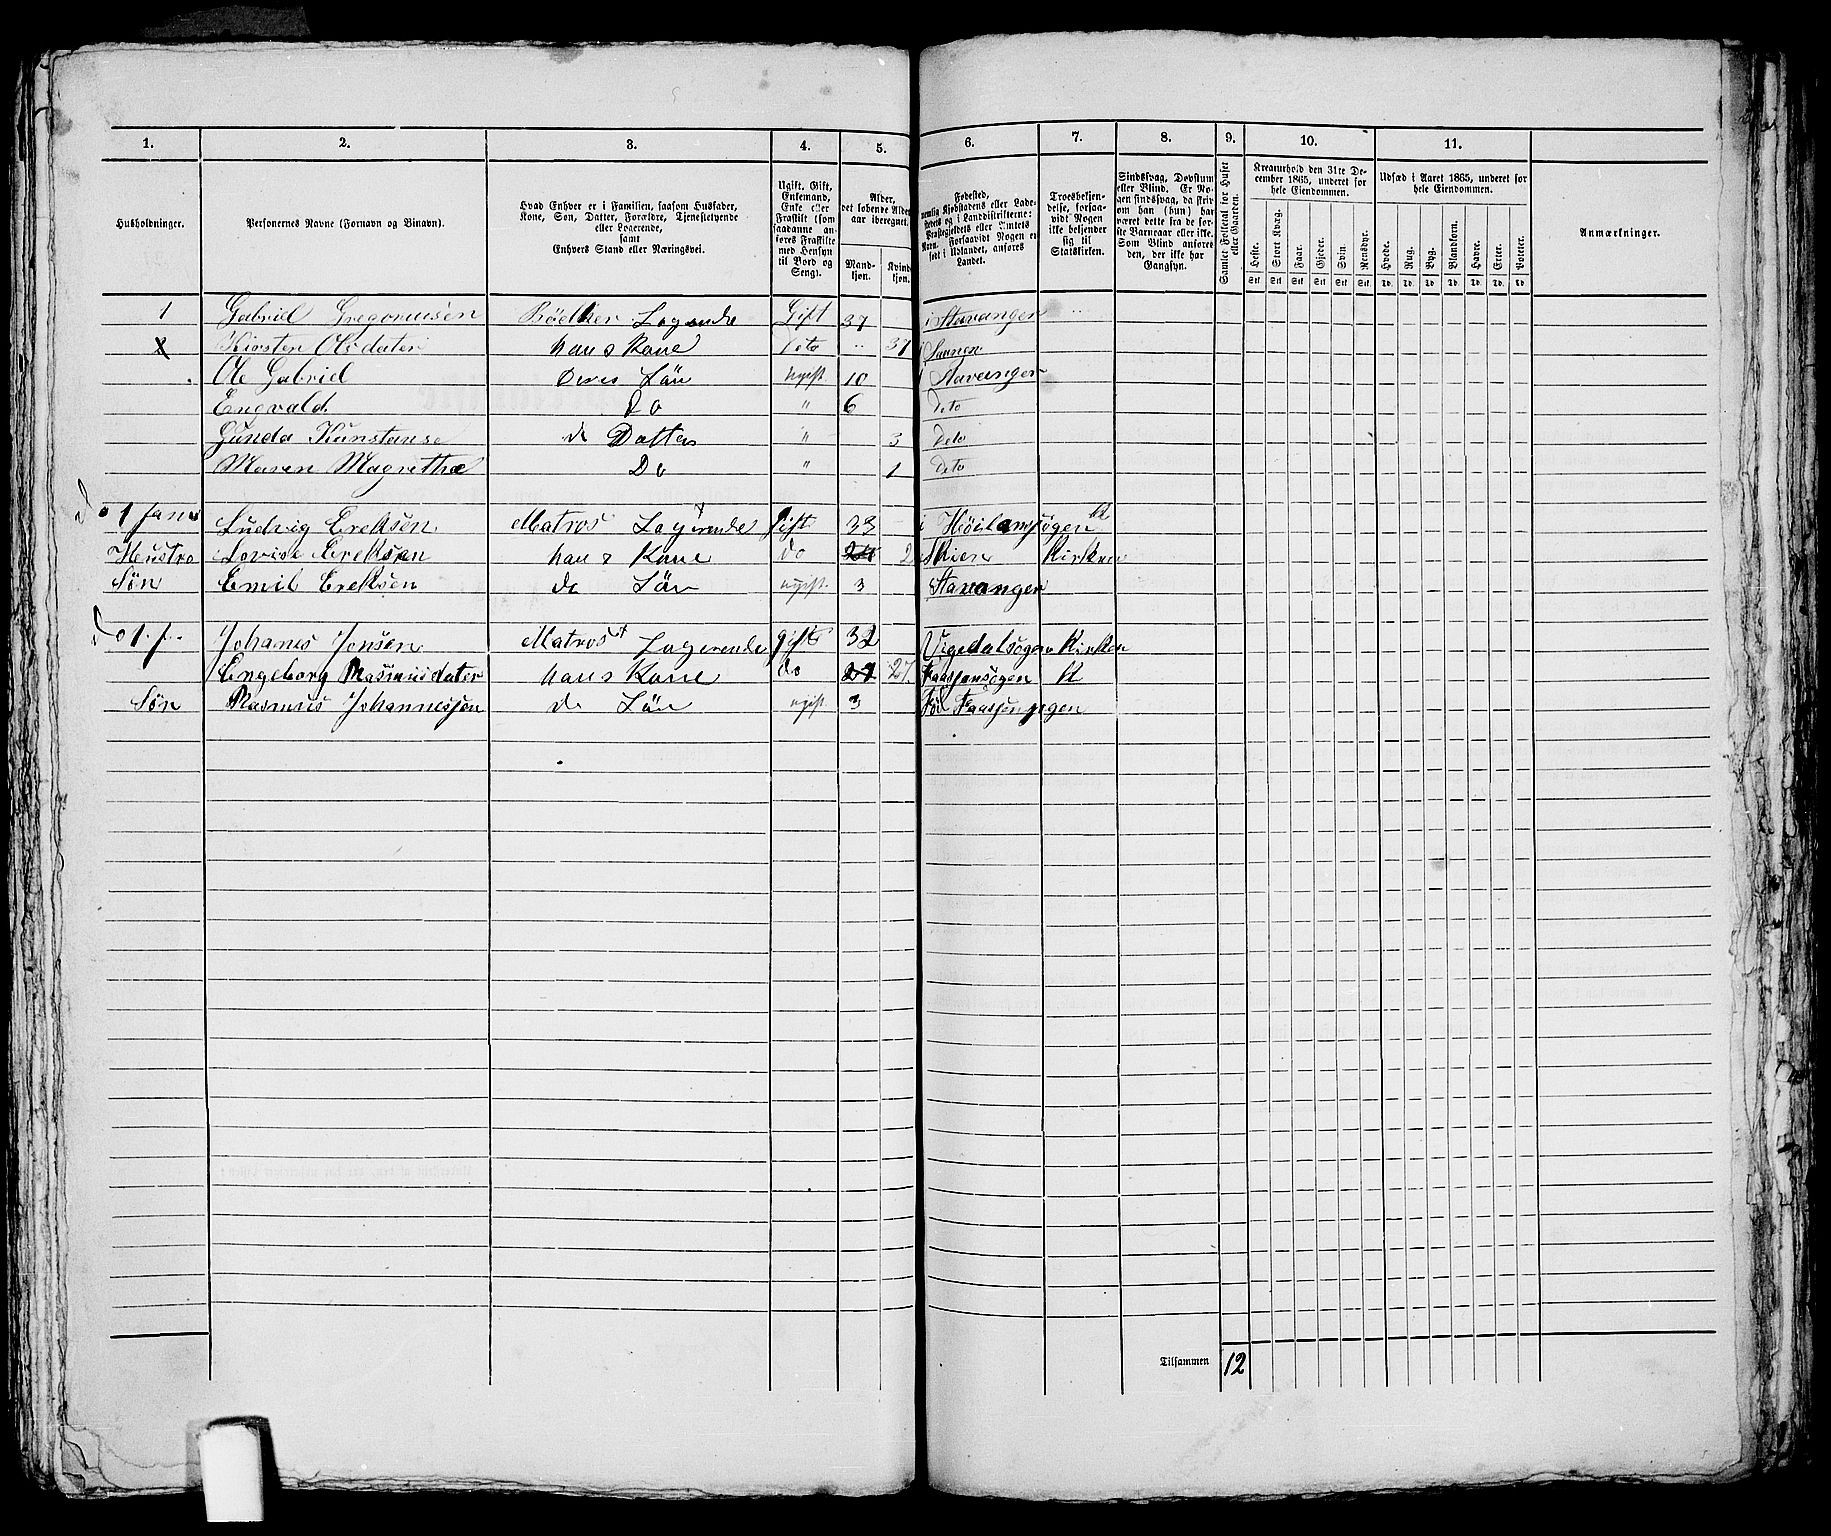 1. 2. 3. 4. 5. 6. 7. 8. 9. 10. 11.
Husholdninger.
Personernes Navne (Fornavn og Binavn).
Hvad Enhver er i Familien, saasom Husfader, Kone, Søn, Datter, Forældre, Tjenestetyende eller Logerende, samt Enhvers Stand eller Næringsvei.
Ugift, Gift, Enkemand, Enke eller Fraskilt (som saadanne anføres Fraskilte med Hensyn til Bord og Seng).
Alder, det løbende Alders-aar iberegnet.
Mand-kjøn. Kvind-kjøn.
Fødested, nemlig Kjøbstadens eller Lade-stedets og i Landdistrikterne: Præstegjeldets eller Amtets Navn. Forsaavidt Nogen er født i Udlandet, anføres Landet.
Troesbekjen-delse, forsaa-vidt Nogen ikke bekjender sig til Statskirken.
Sindssvag, Døvstum eller Blind. Er No-gen sindssvag, da skriv om han (hun) har været dette fra de før-ste Barneaar eller ikke. Som Blind anføres den, der ikke har Gangsyn.
Samlet Folketal for Huset eller Gaarden.
Kreaturhold den 31te De-cember 1865, underet for hele Eiendommen.
Heste. Stort Kvæg. Faar. Gjeder. Svin. Rensdyr.
Stk. Stk. Stk. Stk. Stk. Stk.
Udsæd i Aaret 1865, underet for hele Eiendommen.
Hvede. Rug. Byg. Blandkorn. Havre. Erter. Poteter.
Td. Td. Td. Td. Td. Td. Td.
Anmærkninger.
1 Gabriel Gregoriusen Bödker Logerende Gift 37 i Stavanger
Kirsten Olsdater hans Kone Deto 37
Ole Gabriel Deres Sön ugift 10 Stavanger
Engvald Do " 6 Deto
Gunda Kunstanse do Datter " 3 deto
Maren Magrethæ Do " 1 deto
1 Ludvig Ereksen Matros Logerende gift 33
Hustro Lovise Ereksen hans Kone do 2 Skien Kirken
Søn Emil Ereksen do Sön ugift 3 Stavanger
1 Johanes Jonsen Matros Logerende gift 32 Kirken
Engeborg Rasmusdater hans Kone do 27
Søn Rasmus Johannessøn do Sön ugift 3
Tilsammen 12